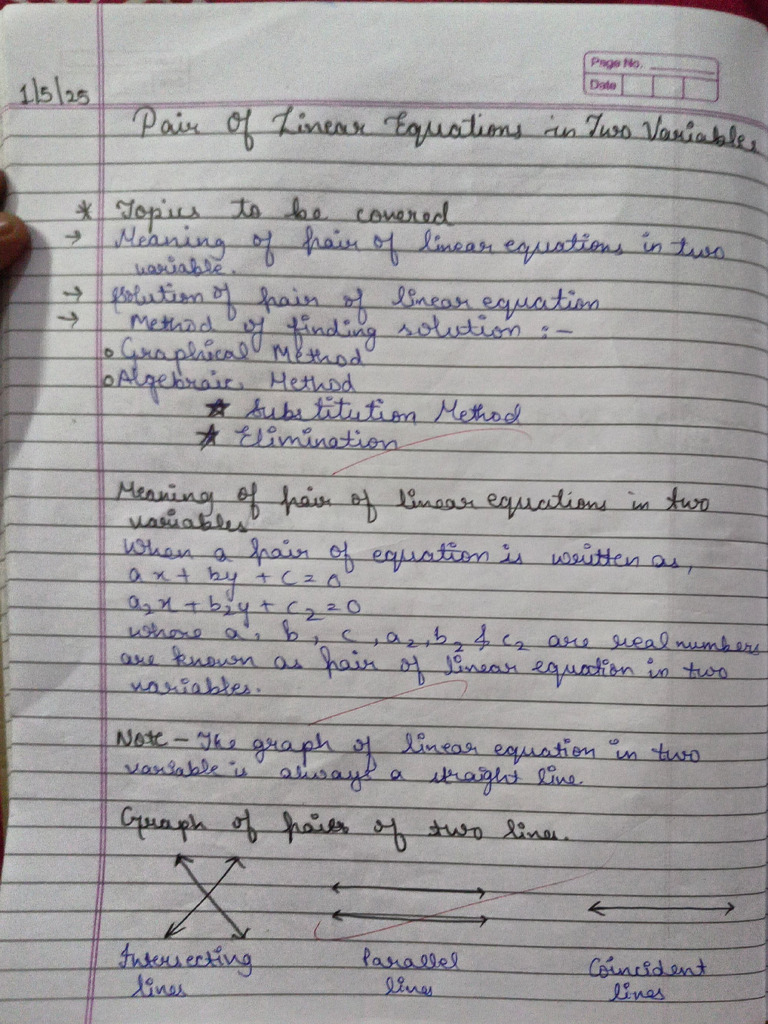 Page No.
Date
1/5/25
Pair Of Linear Equations in Two Variables
* Topics to be covered
→ Meaning of pair of linear equations in two
variable.
→ solution of pair of linear equation
→ Method of finding solution :-
o Graphical Method
o Algebraic Method
★ Substitution Method
★ Elimination
Meaning of pair of linear equations in two
variables
When a pair of equation is written as,
ax + by + c = 0
a₂x + b₂y + c₂ = 0
where a, b, c, a₂, b₂ & c₂ are real numbers
are known as pair of linear equation in two
variables.
Note - The graph of linear equation in two
variable is always a straight line.
Graph of pairs of two lines.
Intersecting Parallel Coincident
lines lines lines